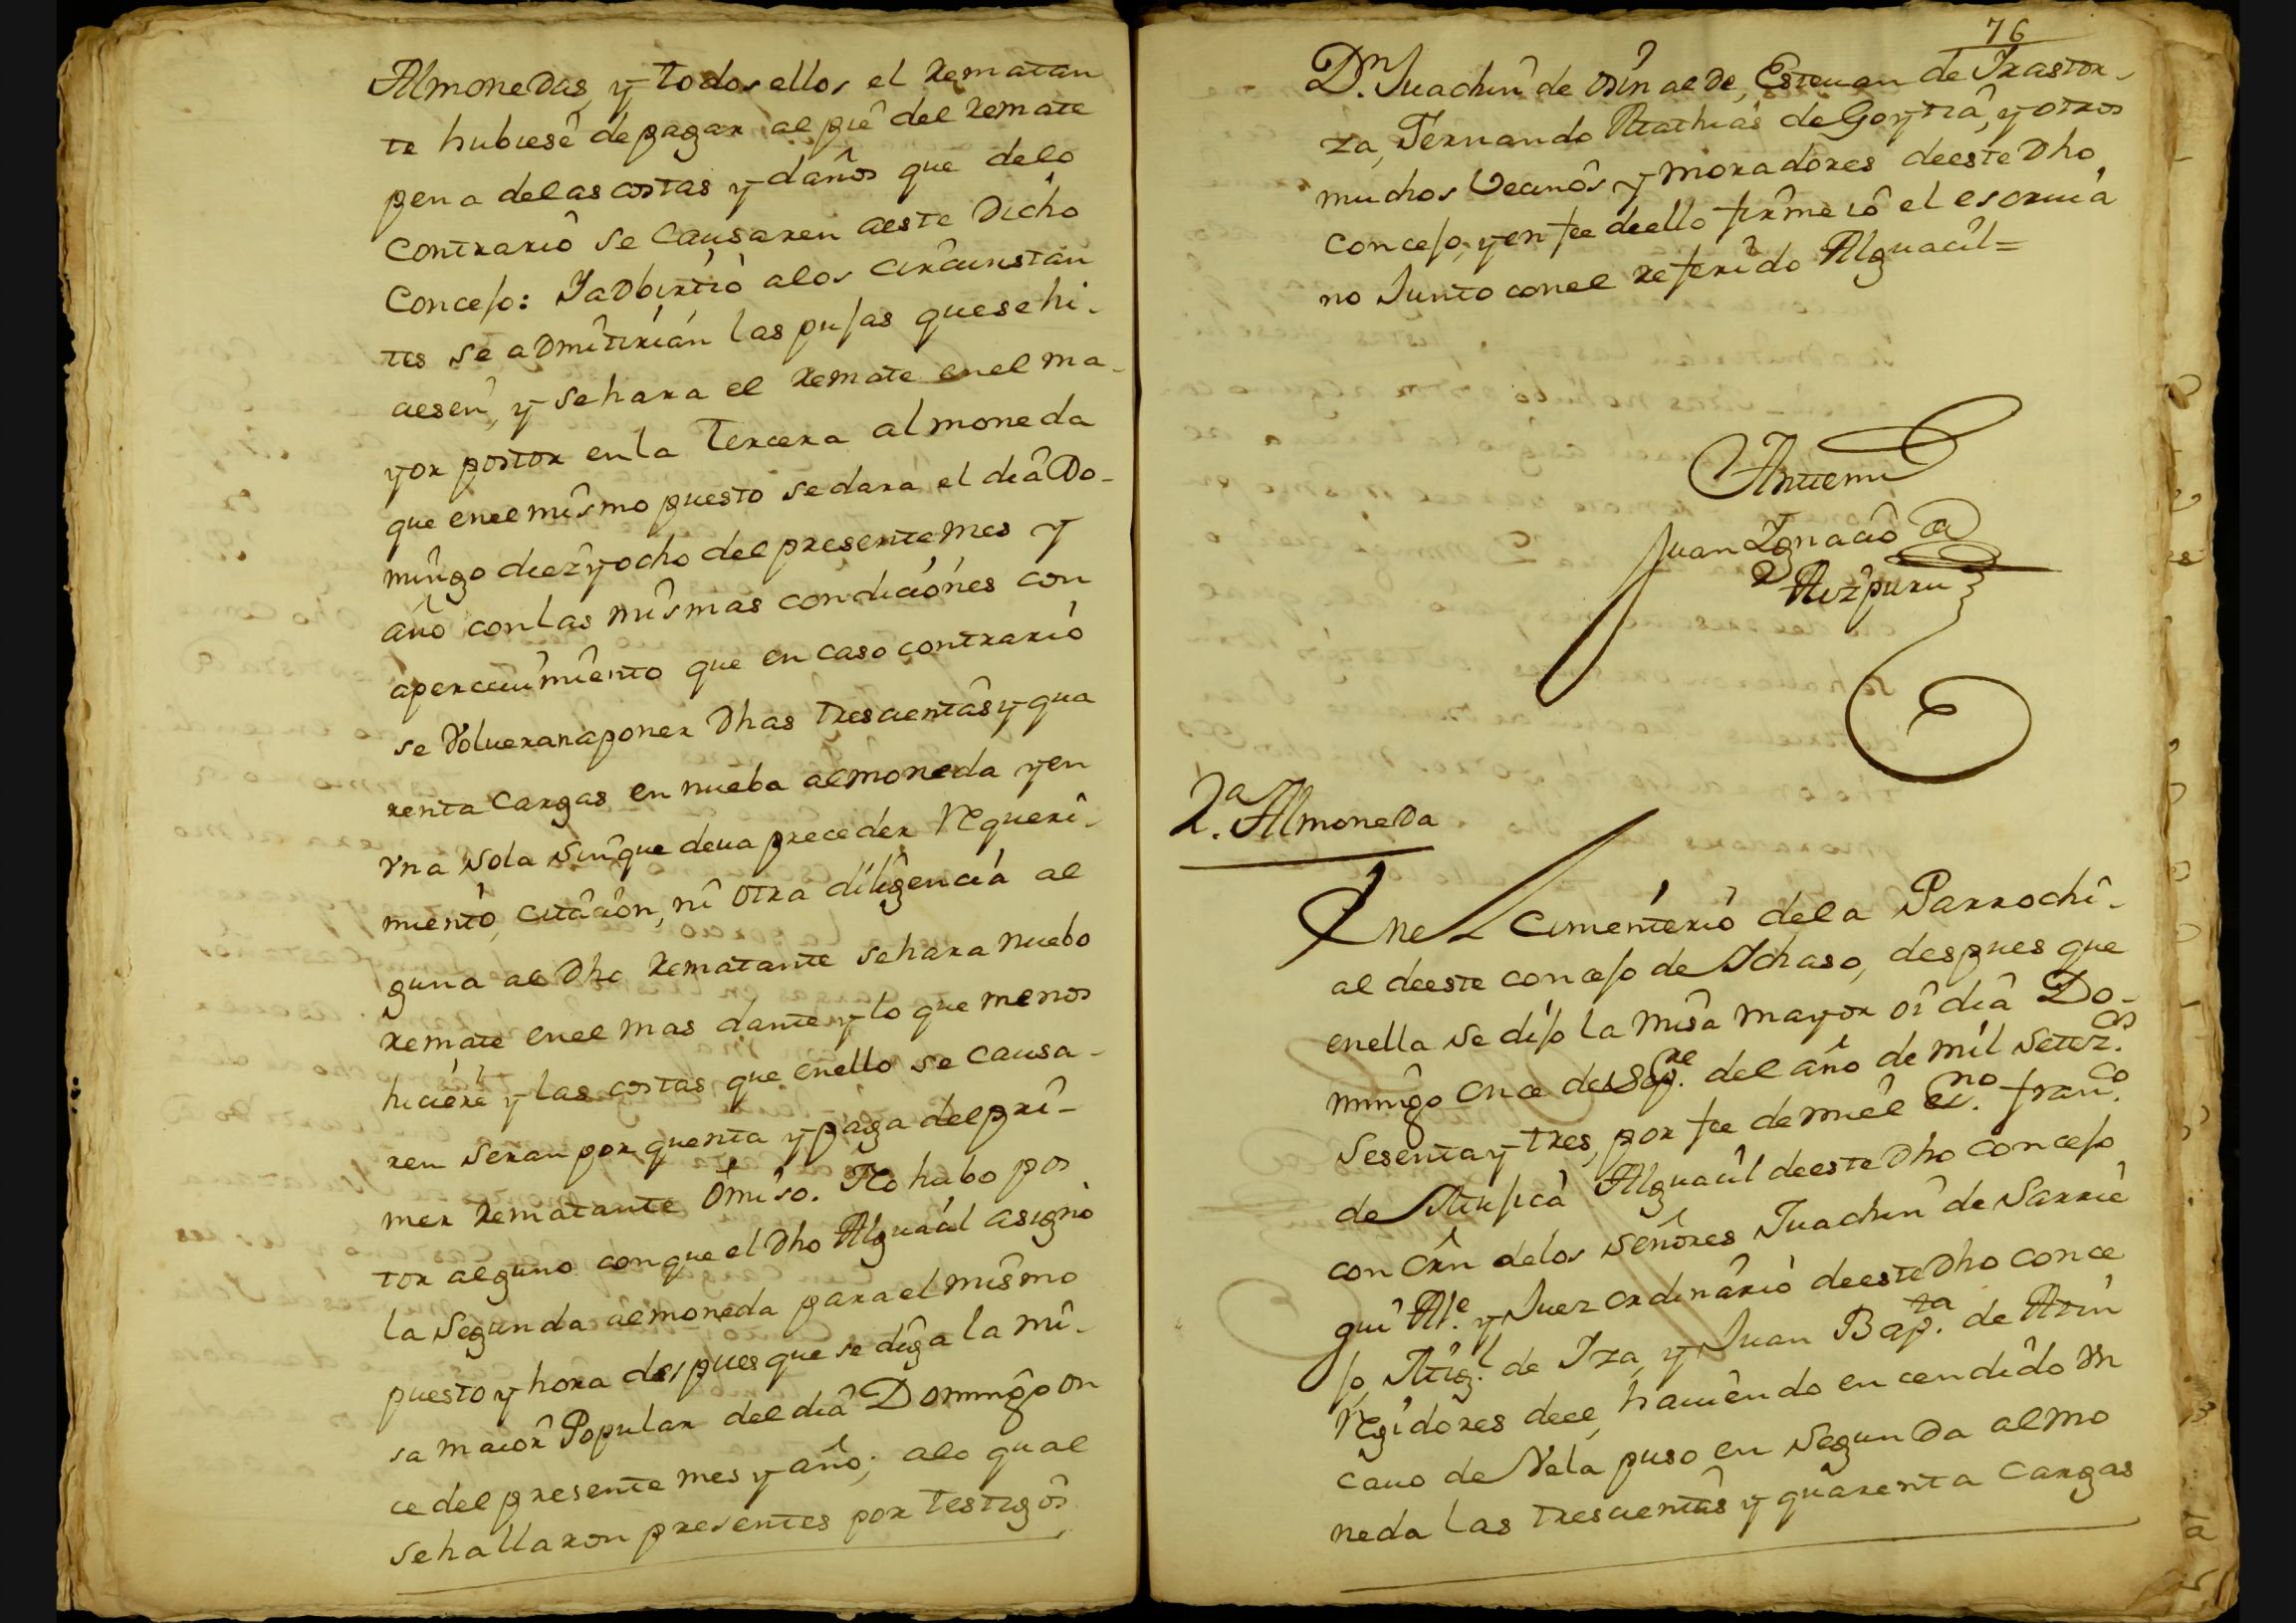 Almonedas, y todos ellos el Rematan
te hubiese de pagar al pie del Remate
pena de las costas y daños que delo
Contrario se Causaren aeste Dicho
Concejo: Yadbirtio alos circunstan
tes se admitirian las pujas quesehi-
ciesen, y sehara el Remate enel ma-
yor postor enla Tercera almoneda
que enelmismo puesto sedara el dia Do-
mingo diezyocho del presente Mes y
año conlas mismas condiciones con
apercivimiento que en caso contrario
se Volueranaponer Dhas trescientas y qua
renta Cargas en nueba almoneda yen
vna sola sinque deua preceder Requeri-
miento, citacion, ni otra diligencia al
guna al Dho Rematante sehara nuebo
Remate enel mas dante, y lo que menos
hiciere y las costas que enello se Causa-
ren seran por quenta y paga delpri-
mer Rematante Omiso. No habo pos
tor alguno conque el Dho Alguacil asigno
la Segunda almoneda para el mismo
puesto y hora despues que se diga la mi-
sa maior Popular del dia Domingo on
ce del presente mes y año; alo qual
sehallaron presentes por testigos
76
Dn. Juachin de Osinalde, Esteuan de Irastor-
za, Fernando Mathias de Goytia, y otros
muchos Vecinos y moradores deeste Dho
Concejo, yen fee deello firme io el escriua
no Junto conel referido Alguacil=
Antemi
Juan Ignacio
de Aizpuru
2.a Almoneda
Enel Cimenterio dela Parrochi-
al deeste concejo de Ichaso, despues que
enella se dijo la misa mayor oi dia Do-
mingo once de Sepre. del año de mil Setezos.
Sesenta y tres, por fee de miel esno. franco.
de Mujica Alguacil deeste Dho concejo
con orn delos señores Juachin de Sarrie
gui Ale. y Juez ordinario deeste Dho conce
jo, Migl. de Iza, y Juan Bapta. de Arin
Regidores deel, haviendo encendido vn
cauo de Vela puso en Segunda almo
neda las trescientas y quarenta Cargas